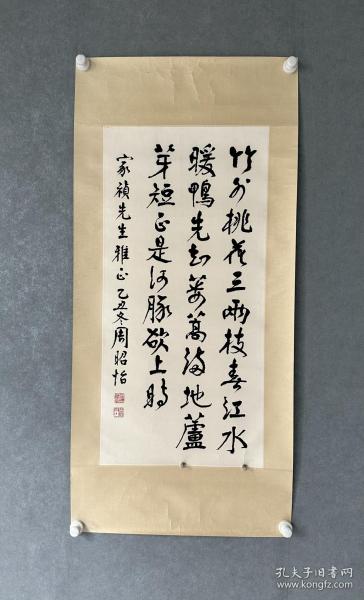 竹外桃花三两枝春江水
暖鴨先知蒌蒿满地蘆
芽短正是河豚欲上时
家禎先生雅正 乙丑冬周昭怡
孔夫子旧书网